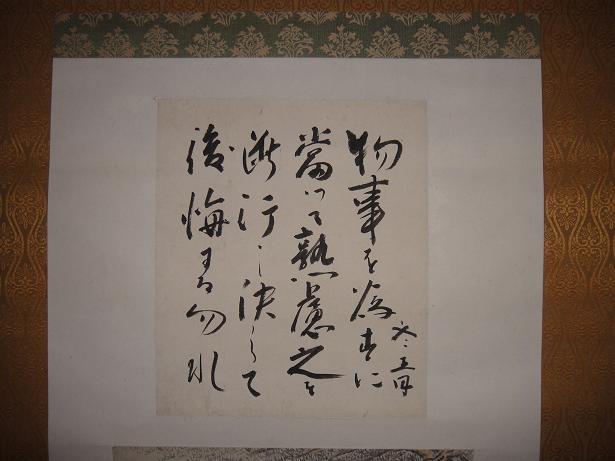 物事を為すに
當つて熟慮之を
断行し決して
後悔する勿れ